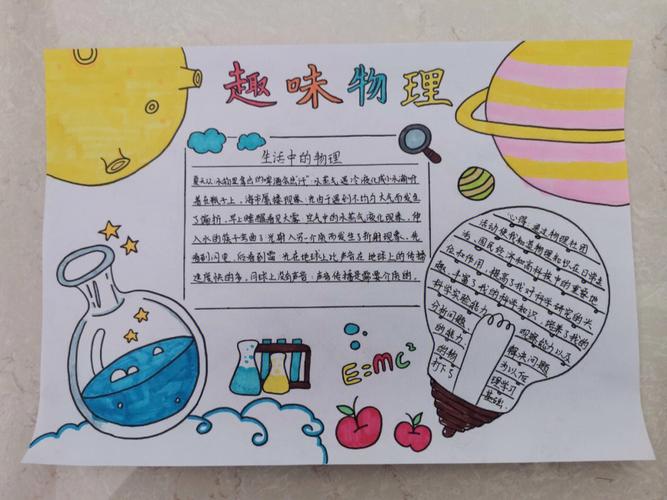 趣味物理
生活中的物理
夏天从冰柜里拿出的啤酒会出"汗" 水蒸气遇冷液化成小水滴附
着在瓶子上，海市蜃楼现象，光由于遇到不均匀大气而发生
了偏折，早上睡醒看见大雾 空气中的水蒸气液化现象，伸
入水的筷子弯曲了光射入另一介质而发生了折射现象，先
看到闪电，后看到雷 光在地球上比声音在地球上的传播
速度快的多，月球上没有声音：声音传播是需要介质的。
E=mc²
心得 通过物理社团
活动使我知道物理知识在日常生
活、国民经济和高科技中的重要地
位和作用 提高了我对科学研究的兴
趣，丰富了我的科学知识，培养了我的
科学实验能力 观察能力以及
分析问题、 解决问题
的能力 为以后
的物 理学习
打下了 基础.